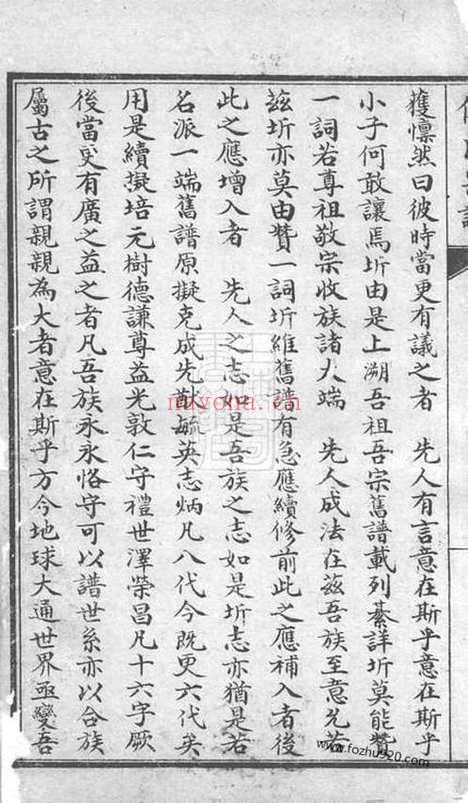 獲懍然曰彼時當更有議之者　先人有言意在斯乎意在斯乎
小子何敢讓焉圻由是上溯吾祖吾宗舊譜載列綦詳圻莫能贊
一詞若尊祖敬宗收族諸大端　先人成法在茲吾族至意尤若
茲圻亦莫由贊一詞圻維舊譜有急應續修前此之應補入者後
此之應增入者　先人之志如是吾族之志如是圻志亦猶是若
名派一端舊譜原擬克成先猷毓英志炳凡八代今既更六代矣
用是續擬培元樹德謙尊益光敦仁守禮世澤榮昌凡十六字厥
後當更有廣之益之者凡吾族永永恪守可以譜世系亦以合族
屬古之所謂親親為大者意在斯乎方今地球大通世界亟變吾
nuyona.cn
www.fozhu920.com